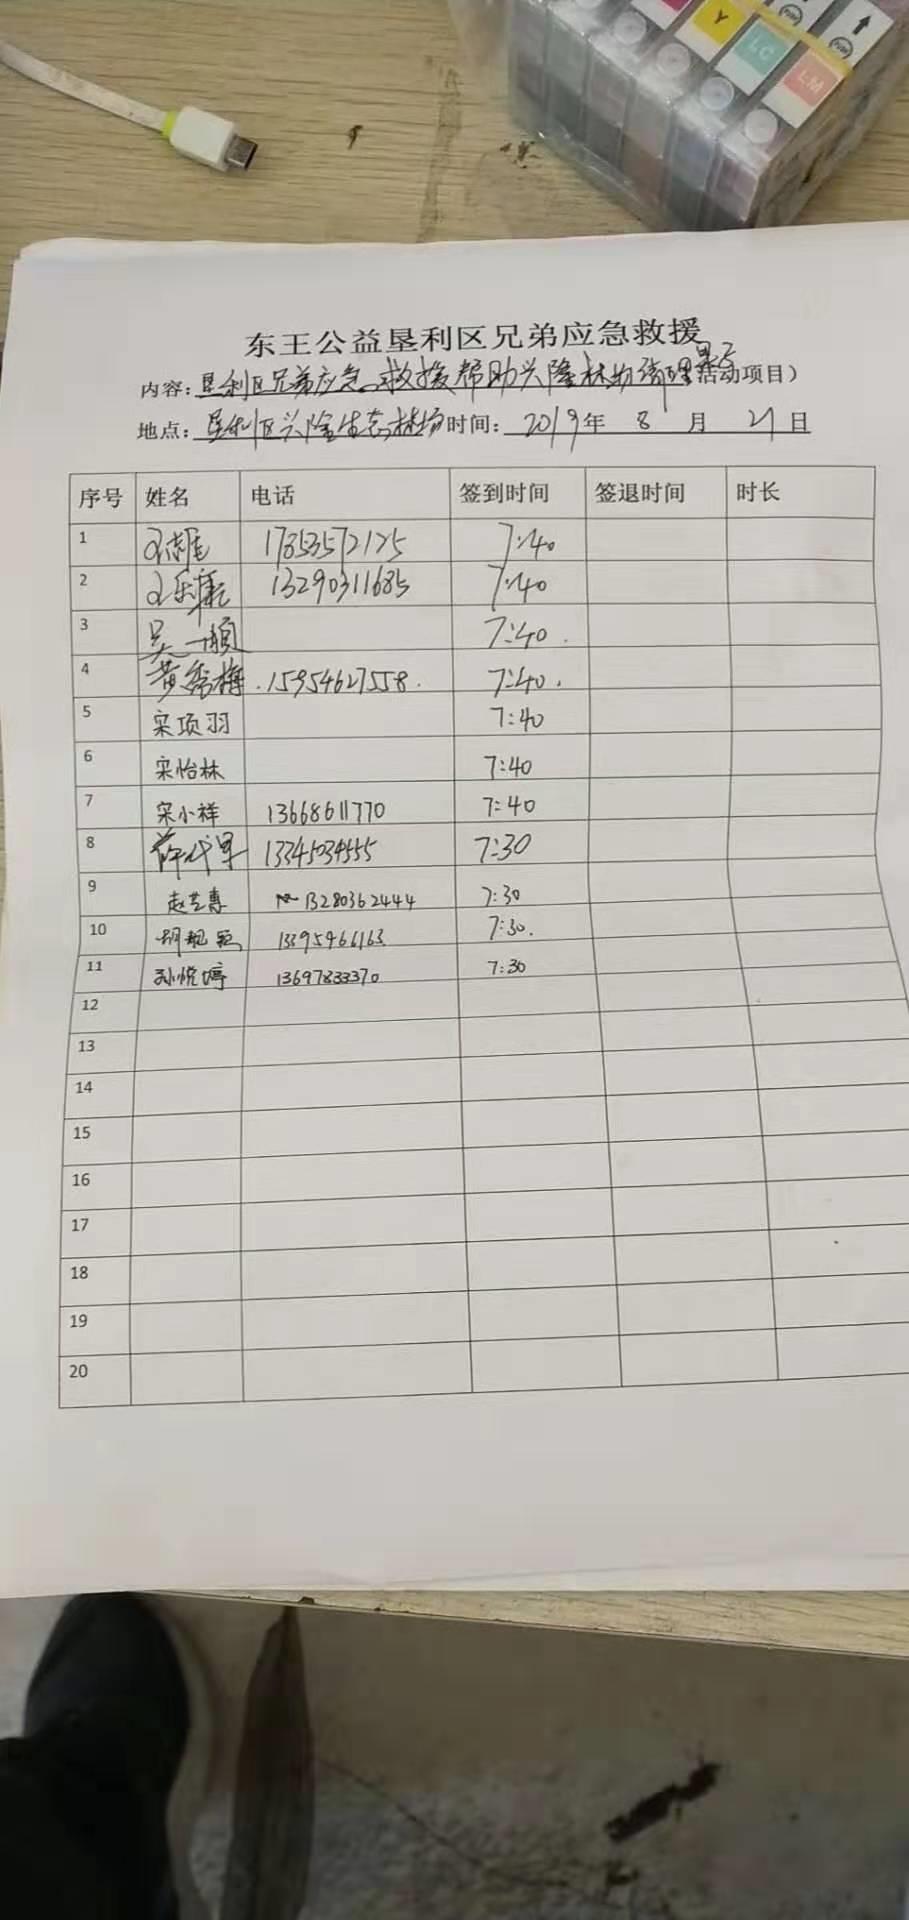 Y
LC
LM
东王公益垦利区兄弟应急救援
内容：垦利区兄弟应急救援帮助兴隆林场清理 活动项目）
地点：垦利区兴隆生态林场 时间：2019年 8 月 21 日
序号 姓名 电话 签到时间 签退时间 时长
1 17853572125 7:40
2 13290311685 7:40
3 吴一顺 7:40
4 黄秀梅 15954627558 7:40
5 宋项羽 7:40
6 宋怡林 7:40
7 宋小祥 13668611770 7:40
8 13345034555 7:30
9 赵艺惠 13280362444 7:30
10 胡靓颖 13395466163 7:30
11 孙悦婷 13697833370 7:30
12
13
14
15
16
17
18
19
20